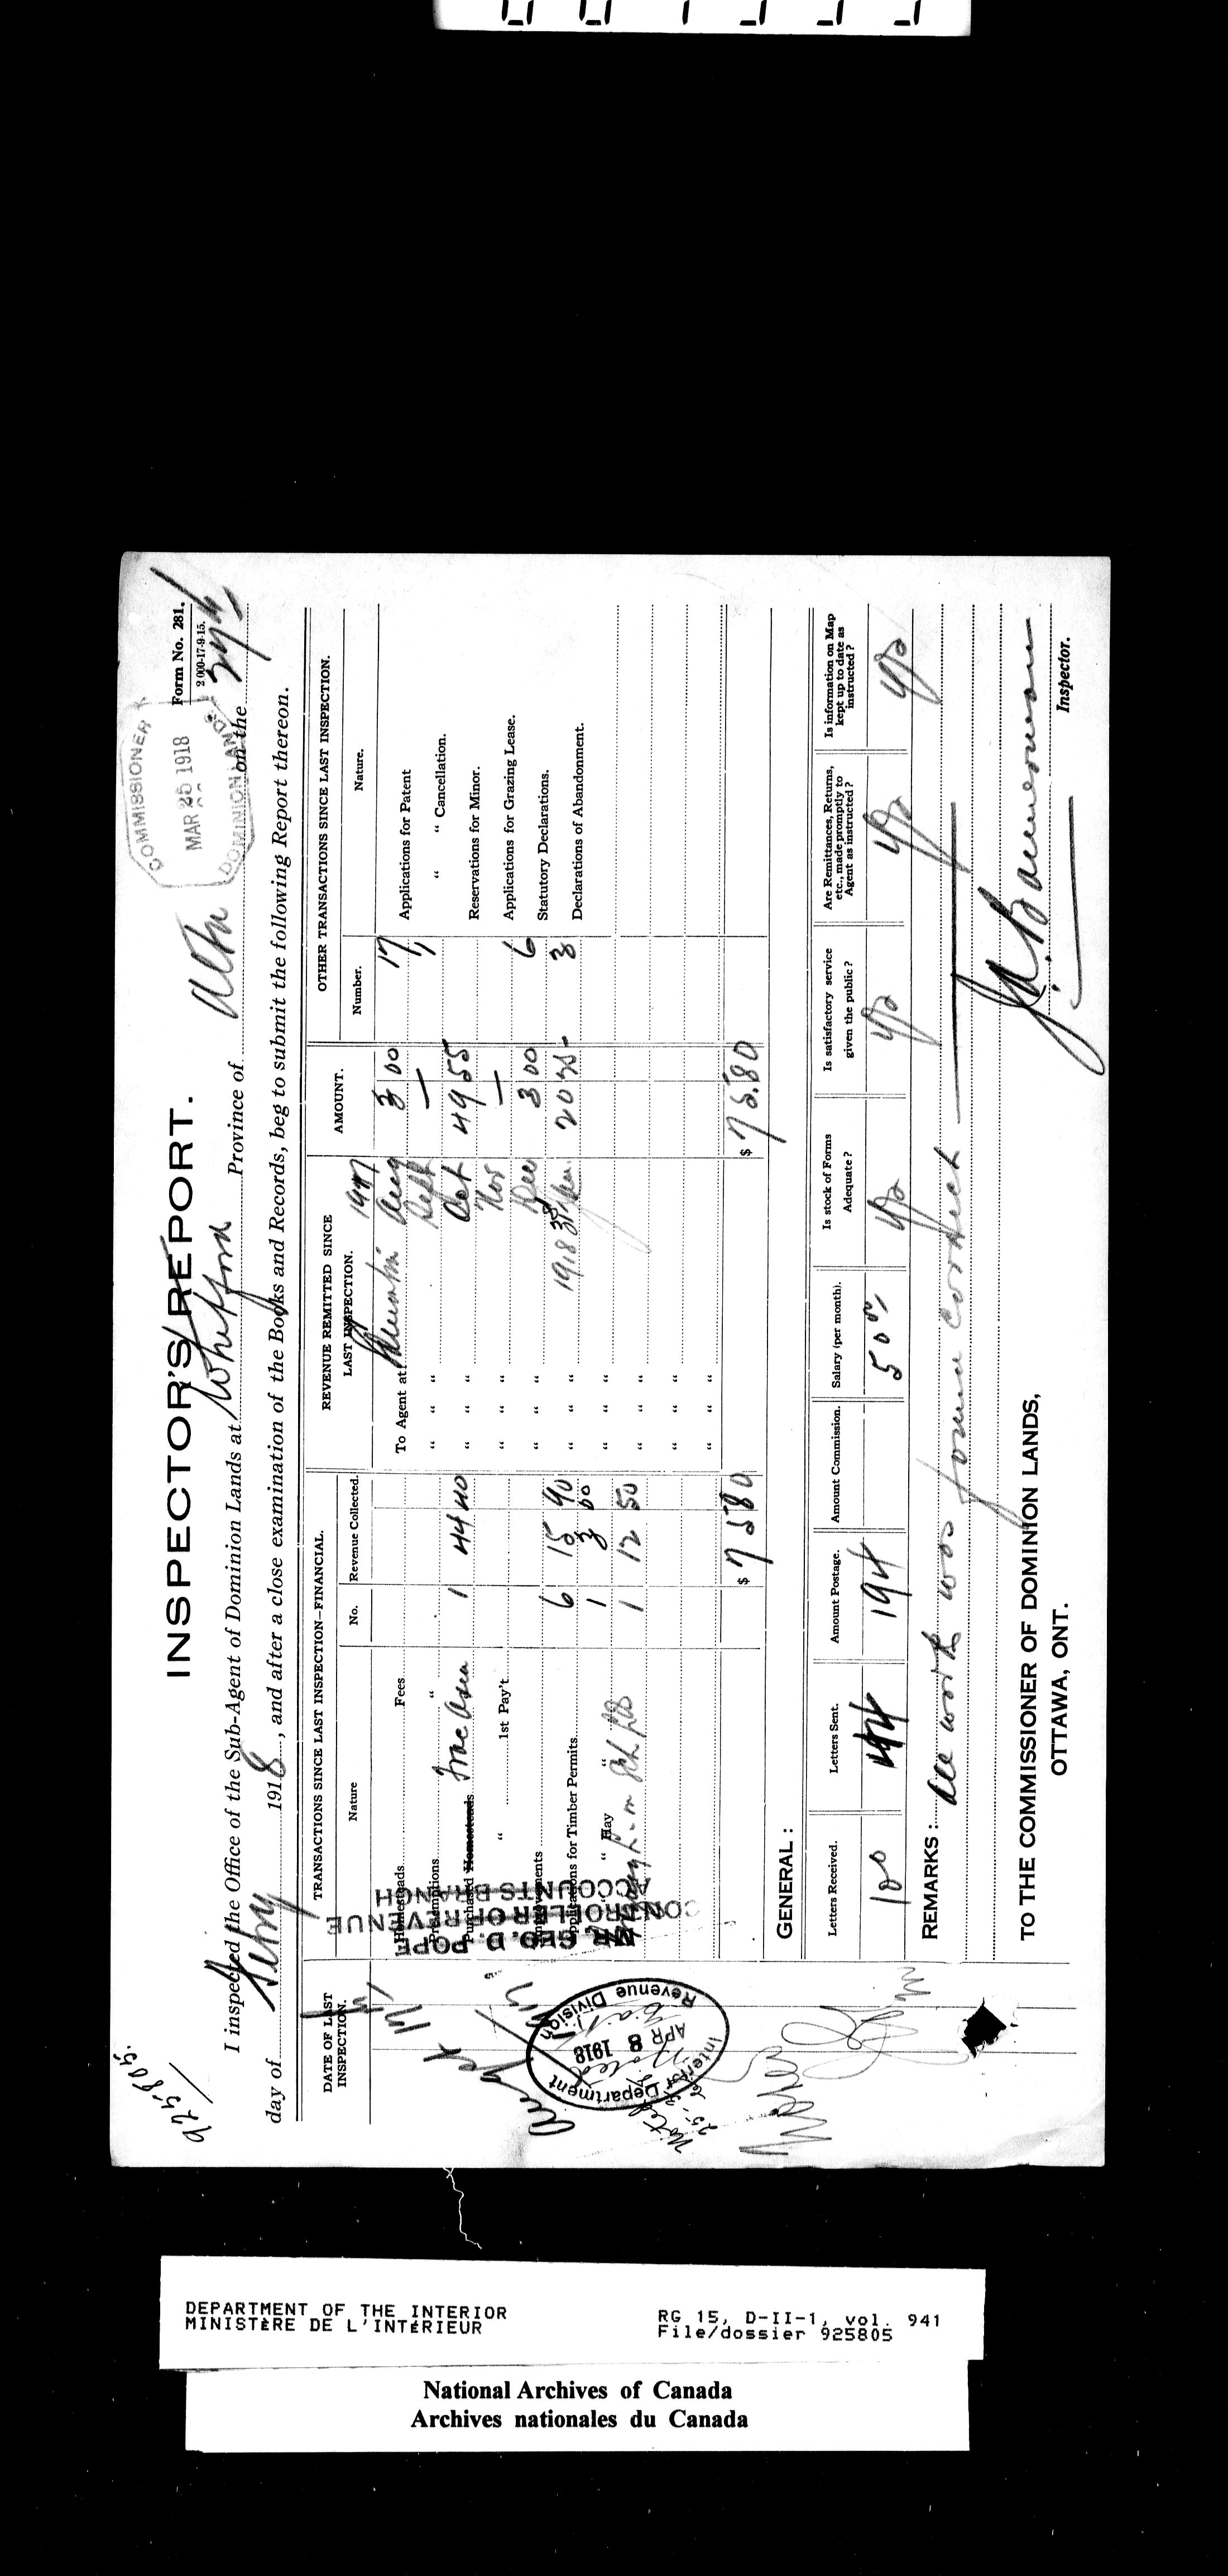 925805.
COMMISSIONER
MAR 25 1918
DOMINION LANDS
Form No. 281.
2 000-17-9-15.
INSPECTOR'S REPORT.
I inspected the Office of the Sub-Agent of Dominion Lands at Whitford Province of Alta on the
day of Feby 1918, and after a close examination of the Books and Records, beg to submit the following Report thereon.
DATE OF LAST INSPECTION.
TRANSACTIONS SINCE LAST INSPECTION—FINANCIAL.
REVENUE REMITTED SINCE LAST INSPECTION.
AMOUNT.
OTHER TRANSACTIONS SINCE LAST INSPECTION.
Nature
No.
Revenue Collected.
1917
Number.
Nature.
Homesteads Fees
To Agent at Edmonton Aug 3 00
17 Applications for Patent
Preemptions "
" " " Sept —
1 " " Cancellation.
Purchased Homesteads Frac Area 1 44 40
" " " Oct 49 55
Reservations for Minor.
" 1st Pay't
" " " Nov —
Applications for Grazing Lease.
Improvements
" " " Dec 3 00
6 Statutory Declarations.
Applications for Timber Permits 6 15 90
" " " 1918 Jan. 20 25
3 Declarations of Abandonment.
" " Hay " 1 3 00
" " "
1 12 50
" " "
" " "
" " "
$ 75 80
$ 75.80
GEO. D. POPE
CONTROLLER OF REVENUE
ACCOUNTS BRANCH
Interior Department
APR 8 1918
Revenue Division
Noted
GENERAL :
Letters Received.
Letters Sent.
Amount Postage.
Amount Commission.
Salary (per month).
Is stock of Forms Adequate ?
Is satisfactory service given the public ?
Are Remittances, Returns, etc., made promptly to Agent as instructed ?
Is information on Map kept up to date as instructed ?
100
194
50 00
yes
yes
yes
yes
REMARKS : All work was found correct
TO THE COMMISSIONER OF DOMINION LANDS,
OTTAWA, ONT.
Inspector.
DEPARTMENT OF THE INTERIOR
MINISTÈRE DE L'INTÉRIEUR
RG 15, D-II-1, vol. 941
File/dossier 925805
National Archives of Canada
Archives nationales du Canada